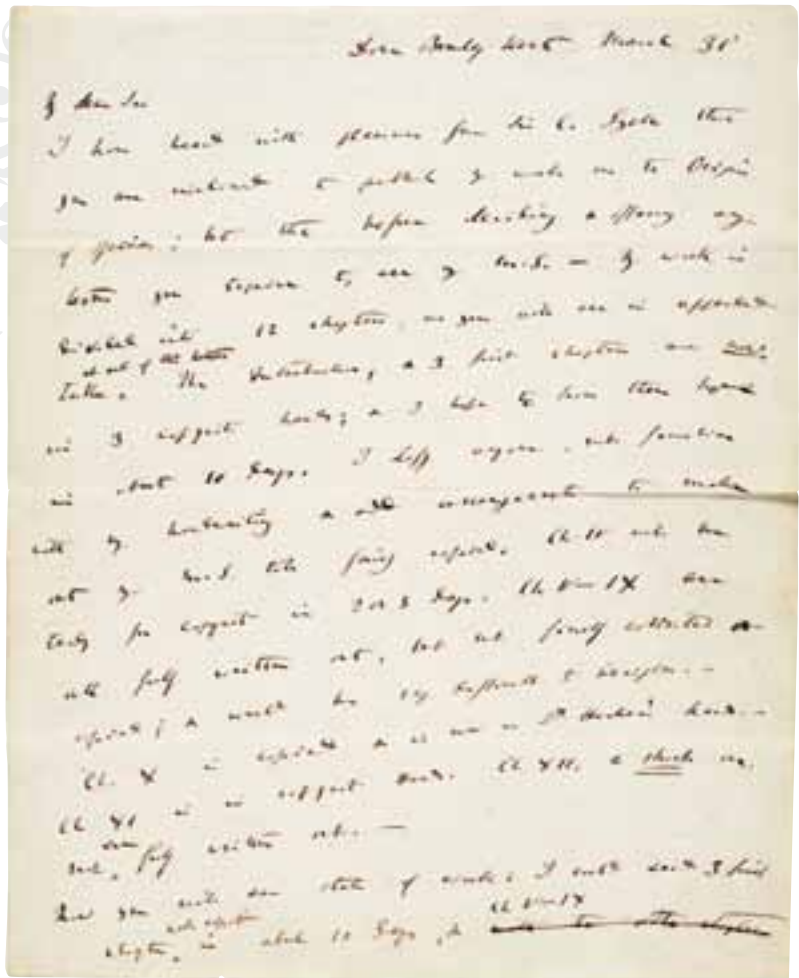 Down Bromley Kent March 31
My dear Sir
I have heard with pleasure from Sir C. Lyell that
you are inclined to publish my work on the Origin
of Species; but that before deciding & offering any
terms you require to see my M.S. — My work is
divided into 12 chapters, as you will see in appended
at end of this letter
Table. The Introduction, & 3 first chapters are now
in 3 copyists hands; & I hope to have them home
in about 10 days. I
with my handwriting
out my M.S. till fairly copied. Ch. IV will be
ready for copyist in 2 or 3 days. Ch V to IX are
all fully written out, but not finally corrected or
copied; & would be very difficult to decipher. —
Ch. X is copied & is now in Dr Hooker's hands. —
Ch XI is in copyist hands. Ch XII, a short one,
fully written out. —
Now you will see state of work: I could send 3 first
Ch IV to IX
chapters, in about 10 days, &